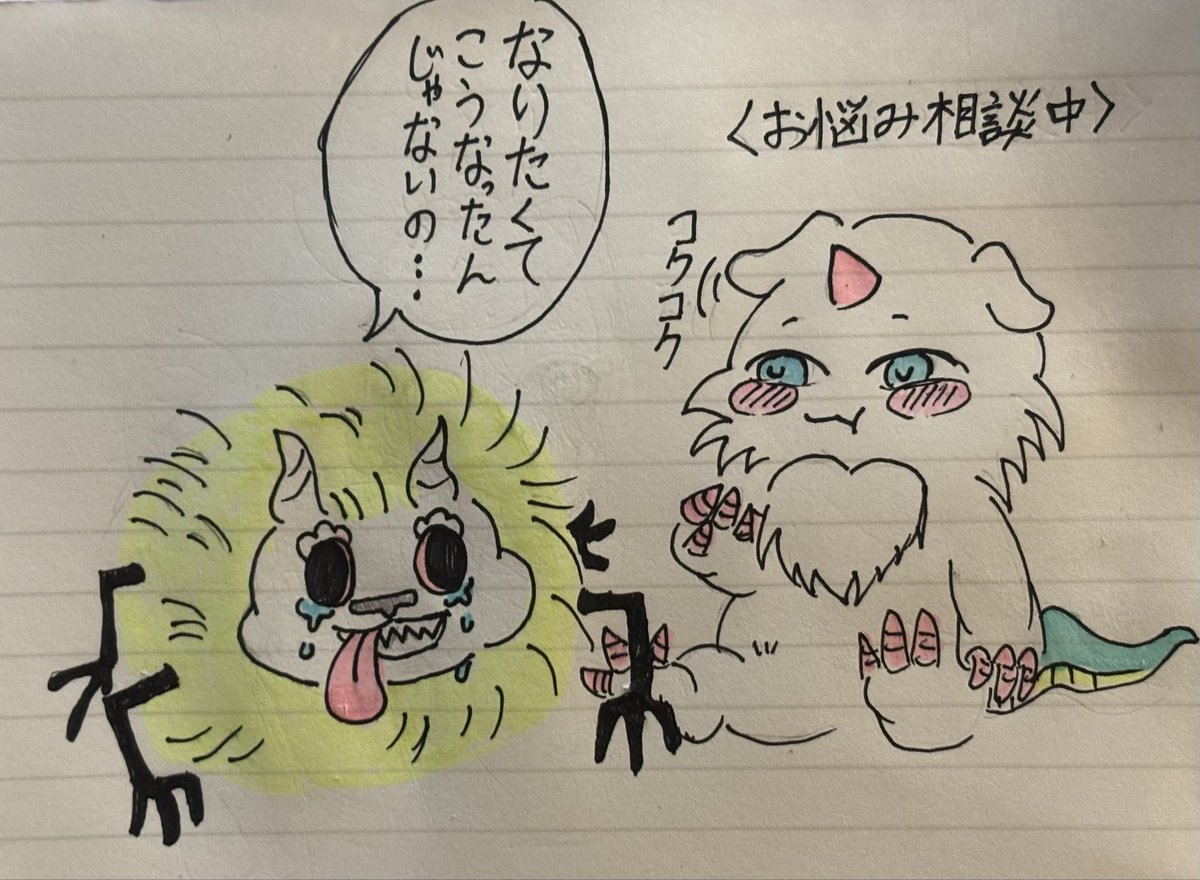 〈お悩み相談中〉
なりたくて
こうなったん
じゃないの…
コクコク